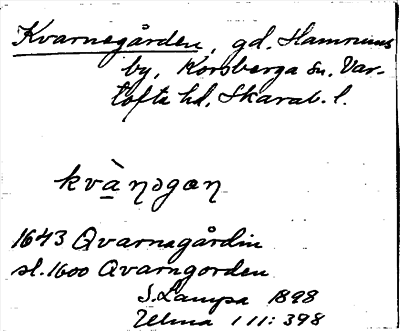 Kvarnegården, gd. Hamrums
by, Korsberga sn. Var-
tofta hd, Skarab. l.
kvà̱ŋəgæŋ
1643 Qvarnagårdin
sl. 1600 Qvarngorden
S. Lampa 1898
Ulma 111: 398